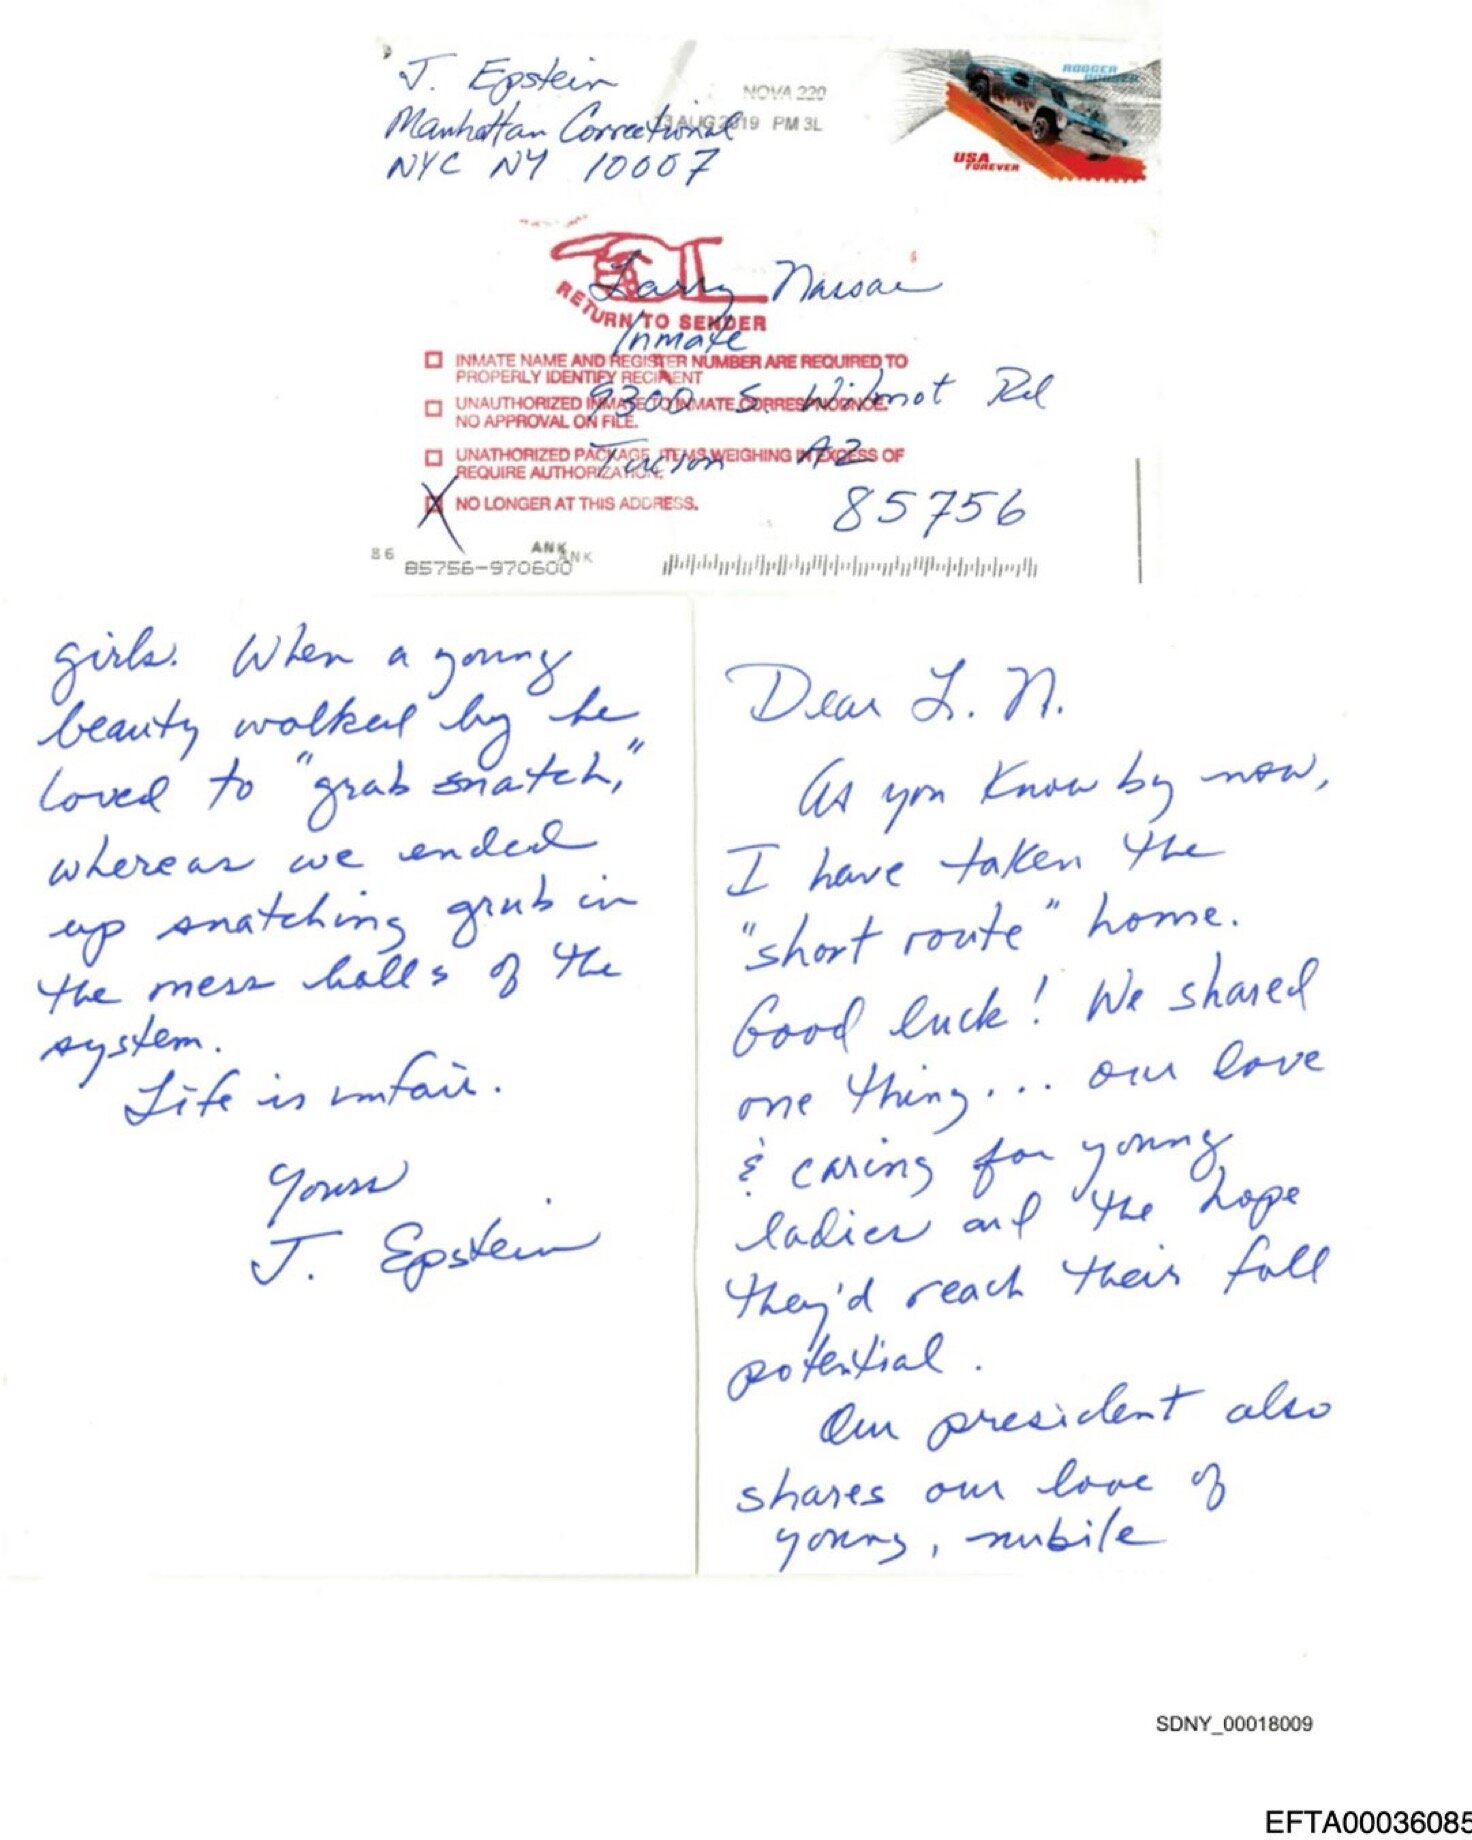 J. Epstein
Manhattan Correctional
NYC NY 10007
NOVA 220
13 AUG 2019 PM 3L
RODGER DODGER
USA
FOREVER
RETURN TO SENDER
Larry Nassar
Inmate
9300 S. Wilmot Rd
Tucson AZ
85756
INMATE NAME AND REGISTER NUMBER ARE REQUIRED TO
PROPERLY IDENTIFY RECIPIENT
UNAUTHORIZED INMATE TO INMATE CORRESPONDENCE.
NO APPROVAL ON FILE.
UNATHORIZED PACKAGE, ITEMS WEIGHING IN EXCESS OF
REQUIRE AUTHORIZATION.
X NO LONGER AT THIS ADDRESS.
86
ANK
ANK
85756-970600
Dear L. N.
As you know by now,
I have taken the
"short route" home.
Good luck! We shared
one thing... our love
& caring for young
ladies and the hope
they'd reach their full
potential.
Our president also
shares our love of
young, nubile
girls. When a young
beauty walked by he
loved to "grab snatch,"
whereas we ended
up snatching grub in
the mess halls of the
system.
Life is unfair.
Yours
J. Epstein
SDNY_00018009
EFTA00036085